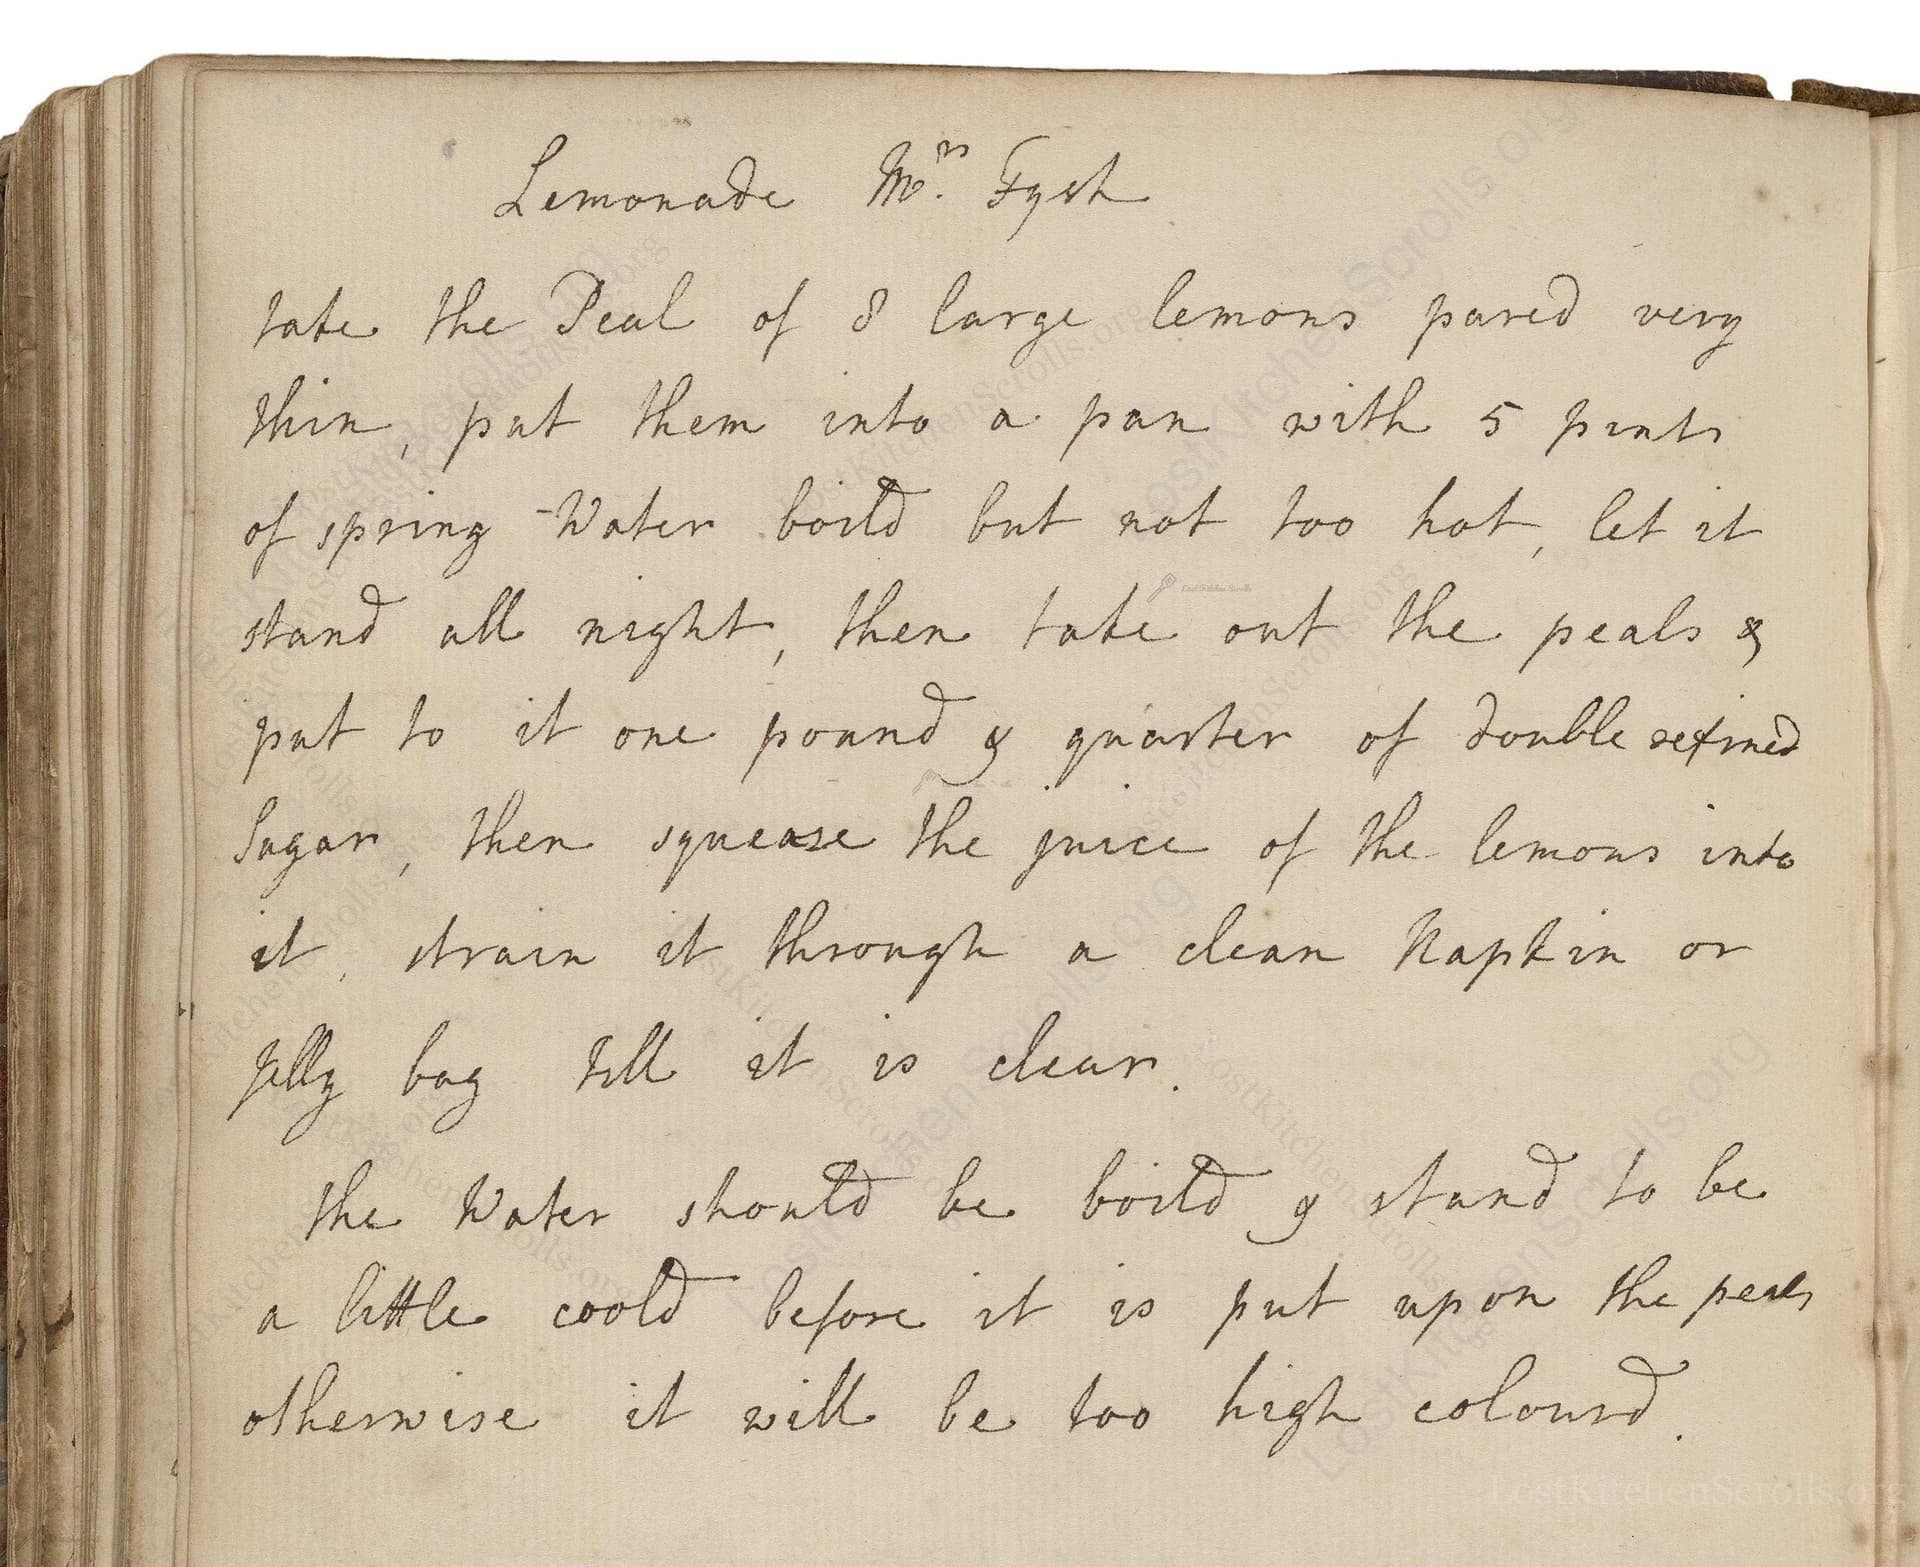 Lemonade Mrs. Fysh
take the Peal of 8 large lemons pared very
thin, put them into a pan with 5 pints
of spring-Water boild but not too hot, let it
stand all night, then take out the peals &
put to it one pound & quarter of double refined
Sugar, then squease the juice of the lemons into
it, strain it through a clean Napkin or
jelly bag till it is clear.
the Water should be boild & stand to be
a little coold before it is put upon the peals
otherwise it will be too high colourd.
LostKitchenScrolls.org